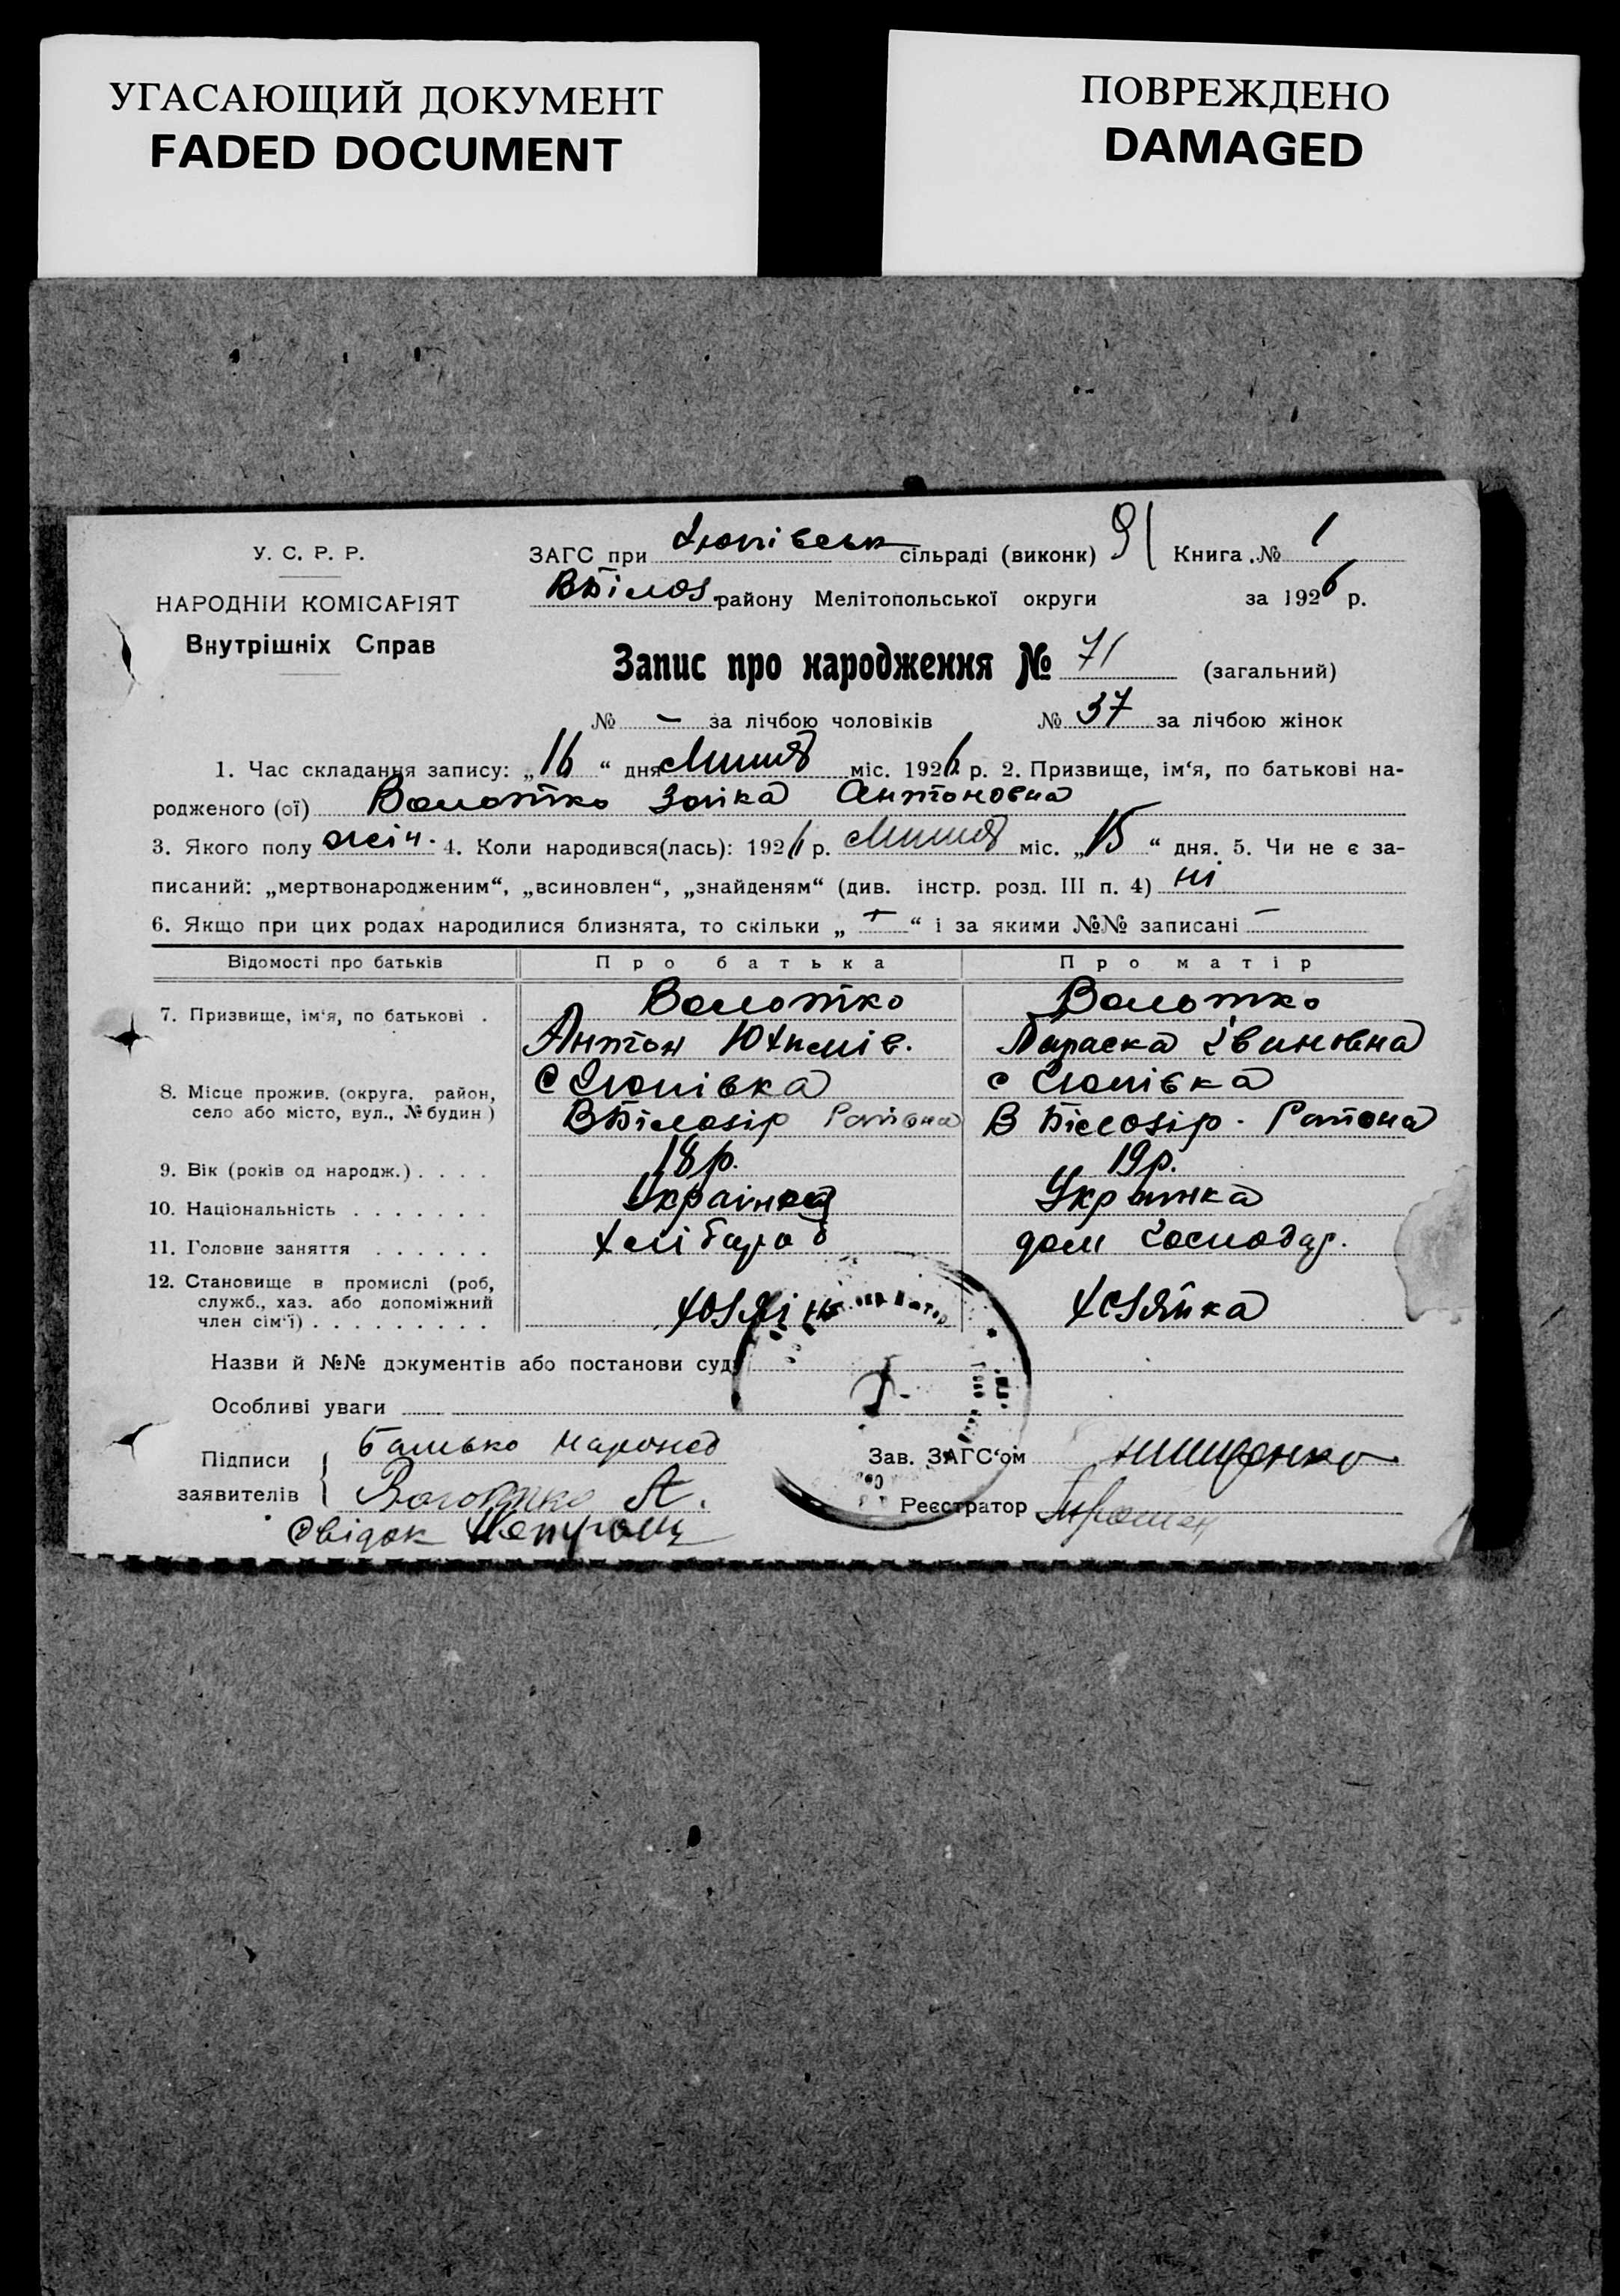 УГАСАЮЩИЙ ДОКУМЕНТ
FADED DOCUMENT
ПОВРЕЖДЕНО
DAMAGED
У. С. Р. Р.
НАРОДНІЙ КОМІСАРІЯТ
Внутрішніх Справ
ЗАГС при сільраді (виконк) 91 Книга № 1
ВБілоз району Мелітопольської округи за 1926 р.
Запис про народження № 71 (загальний)
№ – за лічбою чоловіків № 37 за лічбою жінок
1. Час складання запису: „16“ дня Липня міс. 1926 р. 2. Призвище, ім‘я, по батькові на-
родженого (ої) Волотко Зоіка Антоновна
3. Якого полу жін. 4. Коли народився(лась): 1926 р. Липня міс. „15“ дня. 5. Чи не є за-
писаний: „мертвонародженим“, „всиновлен“, „знайденям“ (див. інстр. розд. III п. 4) ні
6. Якщо при цих родах народилися близнята, то скільки „ – “ і за якими №№ записані –
Відомості про батьків Про батька Про матір
7. Призвище, ім‘я, по батькові . Волотко Волотко
Антон Юхимів. Параска Івановна
8. Місце прожив. (округа, район,
село або місто, вул., № будин) с с
ВБілозір Района В Білозір. Района
9. Вік (років од народж.) . . . . 18р. 19р.
10. Національність . . . . . . . Українка
11. Головне заняття . . . . . . хлібороб дом господар.
12. Становище в промислі (роб,
служб., хаз. або допоміжний
член сім‘ї) . . . . . . . . . хозяїн хозяйка
Назви й №№ документів або постанови суду
Особливі уваги
Підписи
заявителів
Батько
Волотко А.
Свідок
Зав. ЗАГС‘ом
Реєстратор